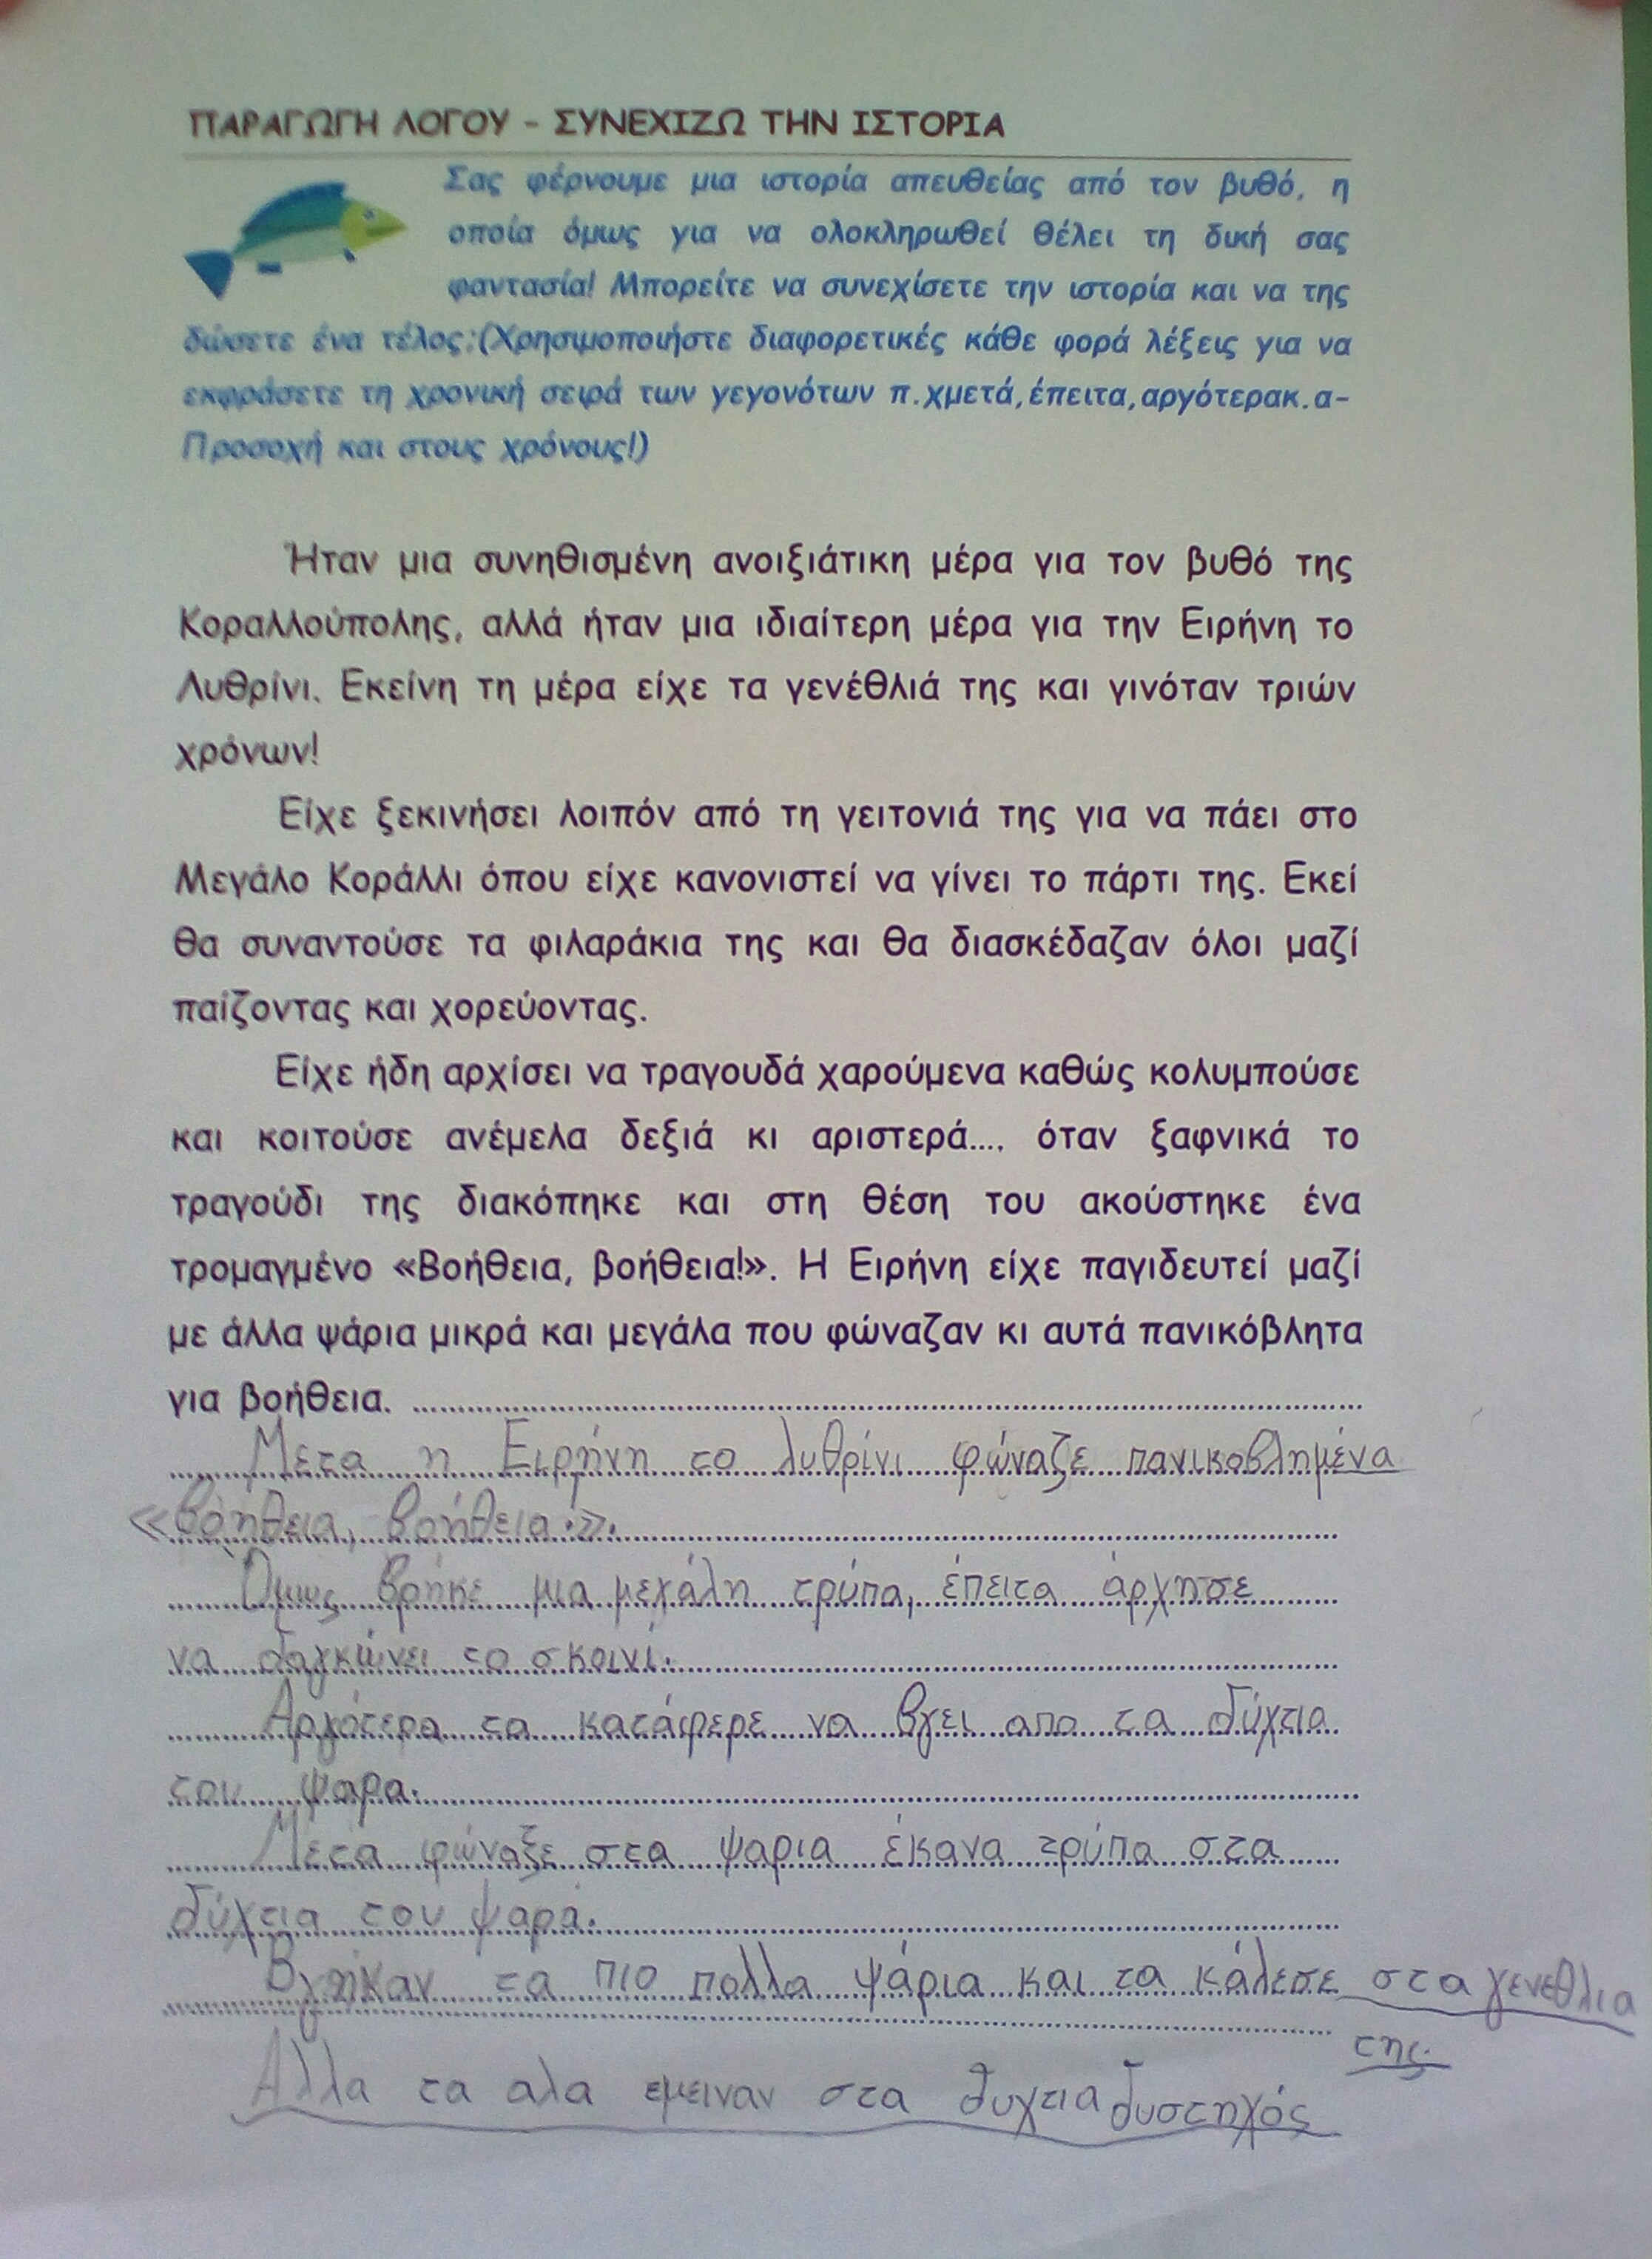 ΠΑΡΑΓΩΓΗ ΛΟΓΟΥ - ΣΥΝΕΧΙΖΩ ΤΗΝ ΙΣΤΟΡΙΑ
Σας φέρνουμε μια ιστορία απευθείας από τον βυθό, η
οποία όμως για να ολοκληρωθεί θέλει τη δική σας
φαντασία! Μπορείτε να συνεχίσετε την ιστορία και να της
δώσετε ένα τέλος;(Χρησιμοποιήστε διαφορετικές κάθε φορά λέξεις για να
εκφράσετε τη χρονική σειρά των γεγονότων π.χμετά,έπειτα,αργότερακ.α-
Προσοχή και στους χρόνους!)
Ήταν μια συνηθισμένη ανοιξιάτικη μέρα για τον βυθό της
Κοραλλούπολης, αλλά ήταν μια ιδιαίτερη μέρα για την Ειρήνη το
Λυθρίνι. Εκείνη τη μέρα είχε τα γενέθλιά της και γινόταν τριών
χρόνων!
Είχε ξεκινήσει λοιπόν από τη γειτονιά της για να πάει στο
Μεγάλο Κοράλλι όπου είχε κανονιστεί να γίνει το πάρτι της. Εκεί
θα συναντούσε τα φιλαράκια της και θα διασκέδαζαν όλοι μαζί
παίζοντας και χορεύοντας.
Είχε ήδη αρχίσει να τραγουδά χαρούμενα καθώς κολυμπούσε
και κοιτούσε ανέμελα δεξιά κι αριστερά.... όταν ξαφνικά το
τραγούδι της διακόπηκε και στη θέση του ακούστηκε ένα
τρομαγμένο «Βοήθεια, βοήθεια!». Η Ειρήνη είχε παγιδευτεί μαζί
με άλλα ψάρια μικρά και μεγάλα που φώναζαν κι αυτά πανικόβλητα
για βοήθεια.
Μετα η Ειρήνη το λυθρίνι φώναζε πανικοβλημένα
«βοηθεια, βοήθεια!».
Όμως βρήκε μια μεχάλη τρύπα, έπειτα άρχησε
να δαγκώνει το σκοινί.
Αργότερα τα κατάφερε να βγει απο τα δύχτια
του ψαρα.
Μετα φώναξε στα ψαρια έκανα τρύπα στα
δύχτια του ψαρά.
Βγήκαν τα πιο πολλα ψάρια και τα κάλεσε στα γενεθλια
της.
Αλλα τα αλα εμειναν στα δυχτια δυστηχός